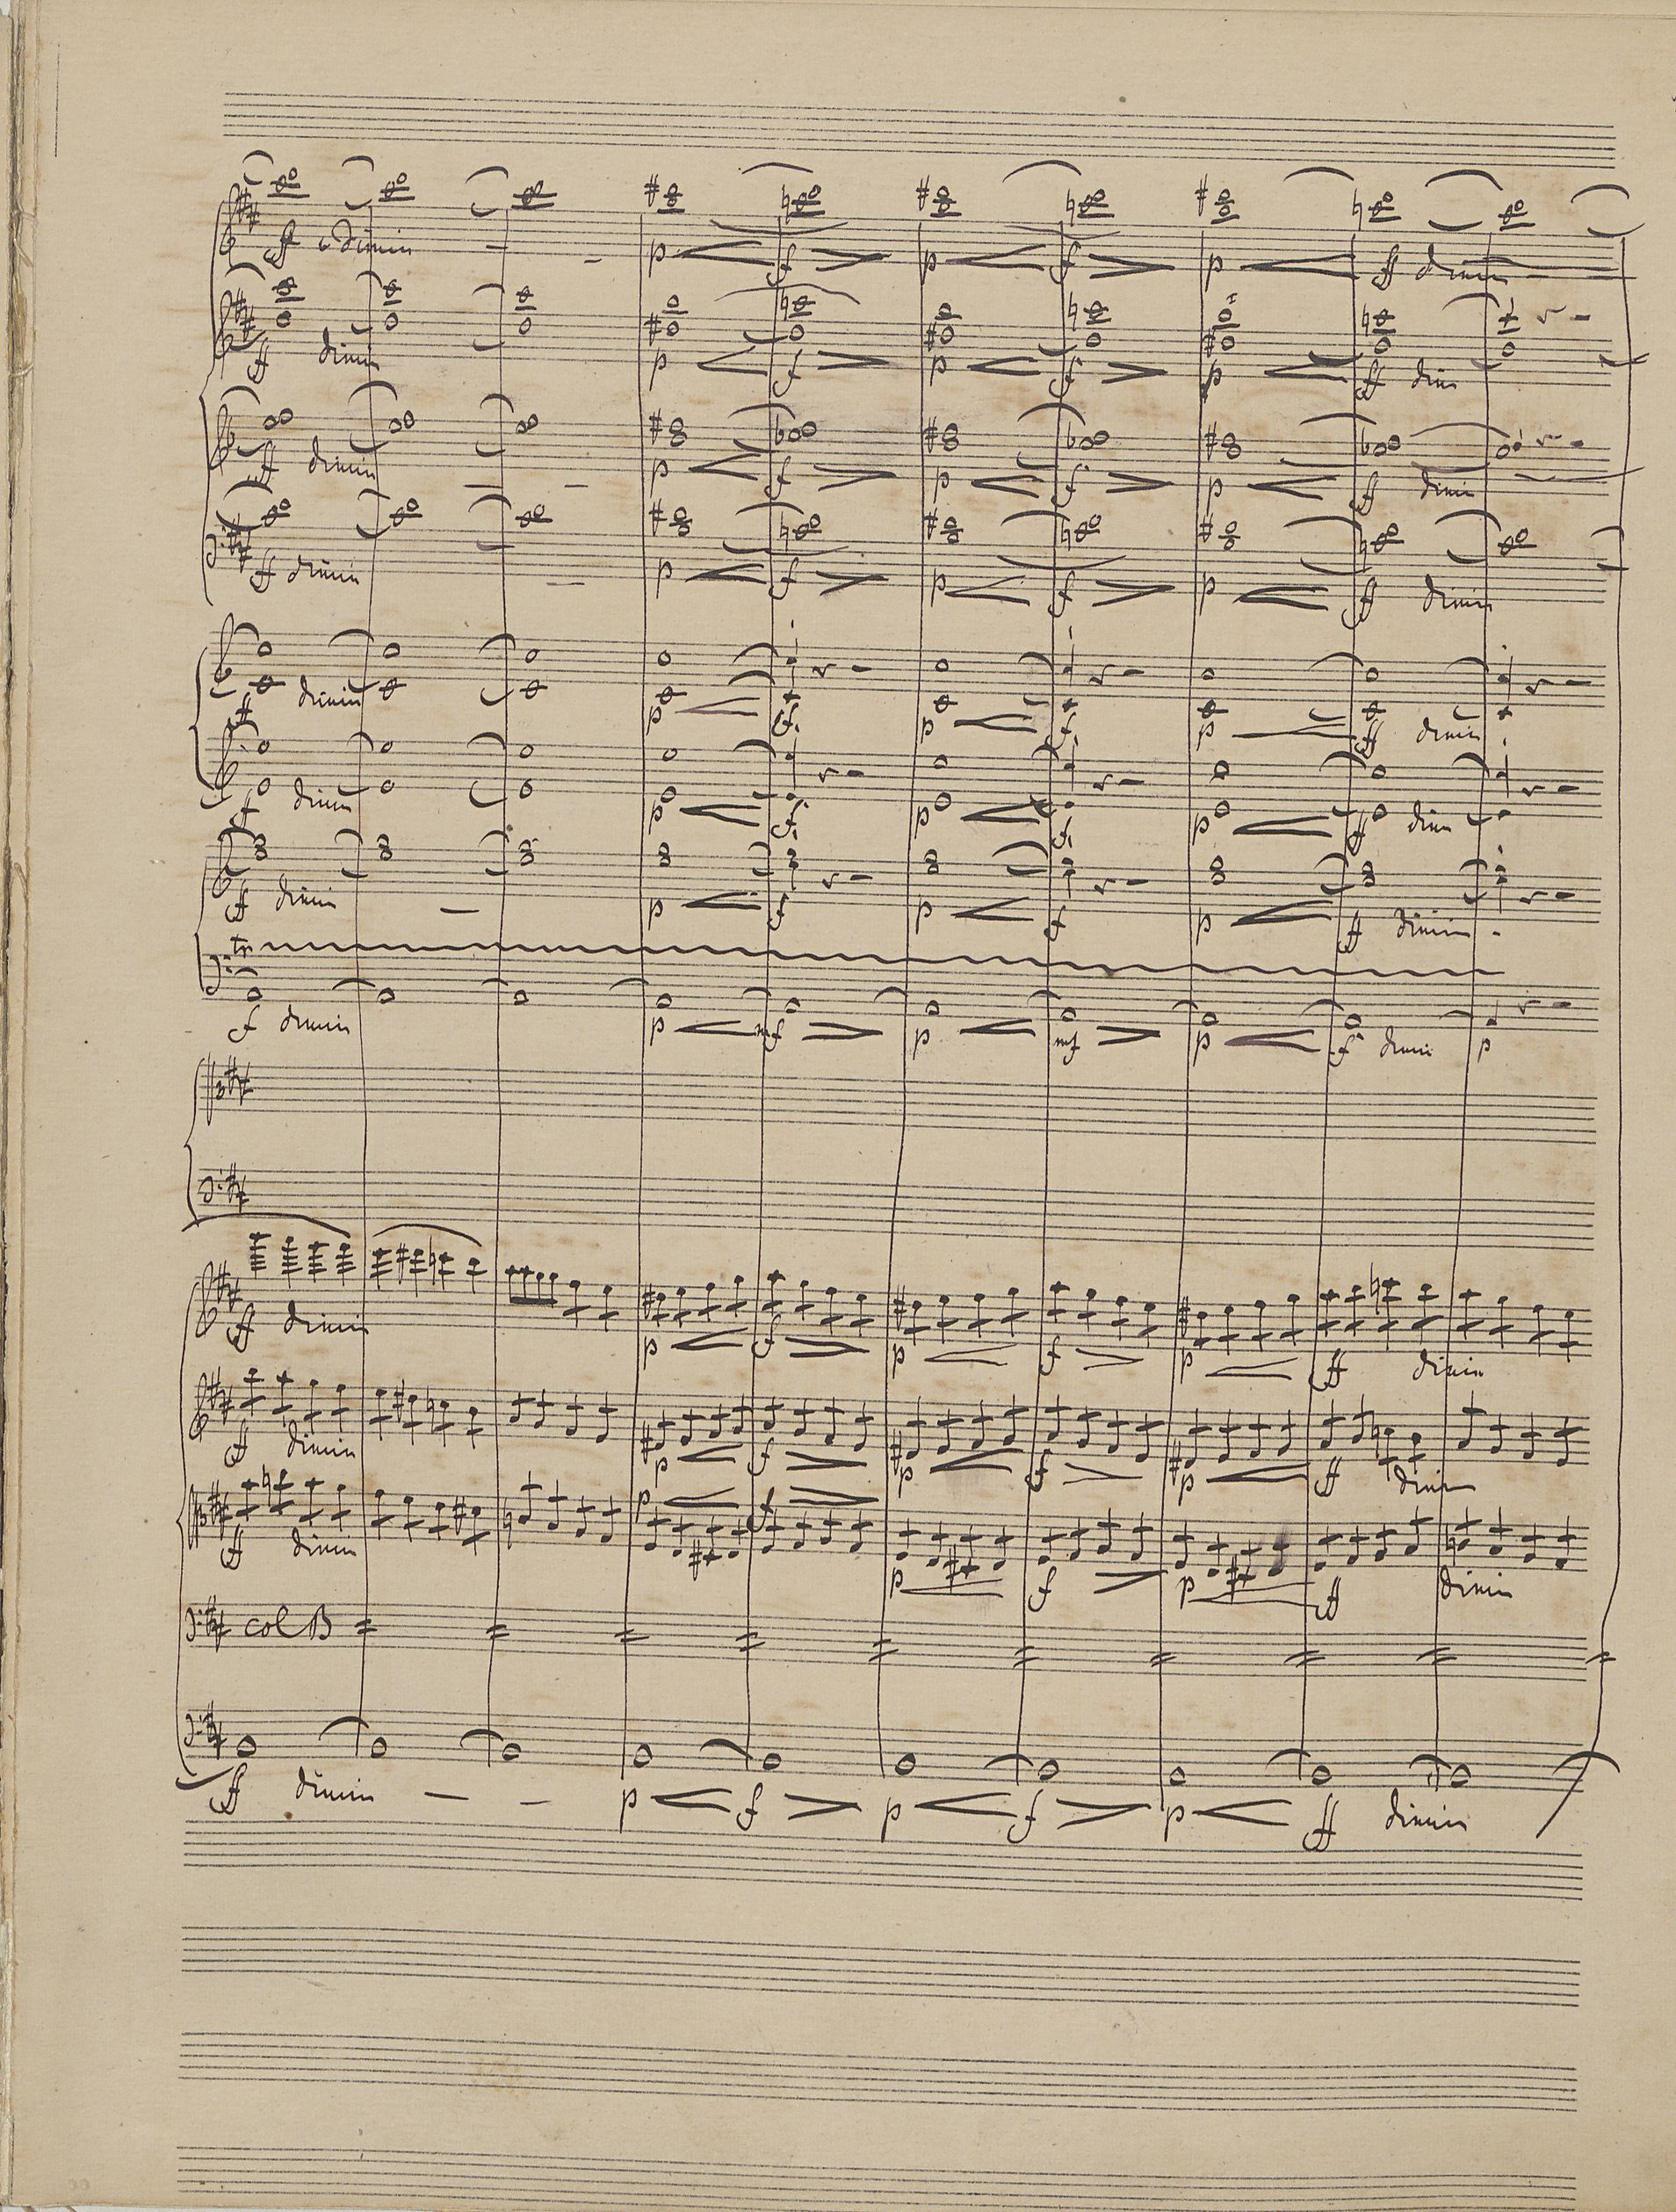 ff dimin
p f p f p ff dimin
ff dimin
p f p f p ff dim
ff dimin
p f p f p ff dimin
ff dimin
p f p f p ff dimin
ff dimin
p f p f p ff dimin
ff dimin
p f p f p ff dim
ff dimin
p f p f p ff dimin
tr
f dimin p mf p mf p f dimin p
ff dimin
p f p f p ff dimin
ff dimin
p f p f p ff dimin
ff dimin
p f p f p ff dimin
col B
ff dimin p f p f p ff dimin